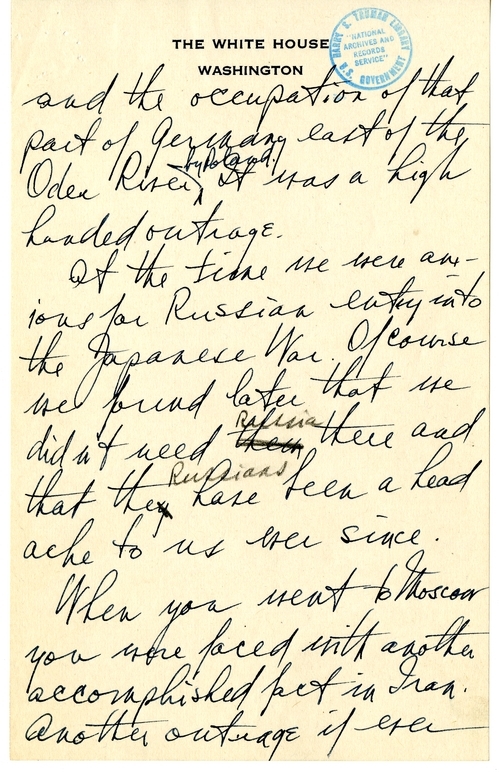 THE WHITE HOUSE
WASHINGTON
HARRY S. TRUMAN LIBRARY
"NATIONAL
ARCHIVES AND
RECORDS
SERVICE"
U.S. GOVERNMENT
and the occupation of that
part of Germany east of the
by Poland.
Oder River. It was a high
handed outrage.
At the time we were anx-
ious for Russian entry into
the Japanese War. Of course
we found later that we
Russia
didn't need them there and
Russians
that they have been a head
ache to us ever since.
When you went to Moscow
you were faced with another
accomplished fact in Iran.
Another outrage if ever